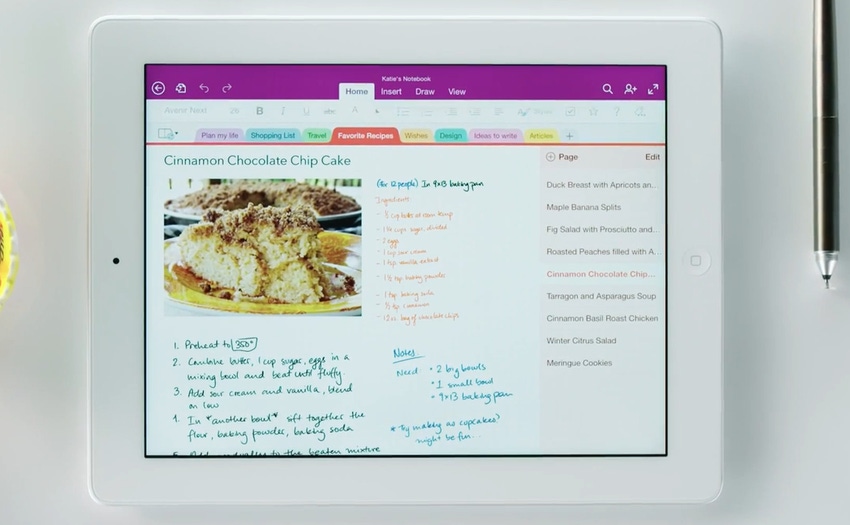 Katie's Notebook
Home Insert Draw View
Avenir Next 26 B I U abc A
Plan my life Shopping List Travel Favorite Recipes Wishes Design Ideas to write Articles +
Cinnamon Chocolate Chip Cake
(for 12 people) In 9x13 baking pan
Ingredients
- 2 eggs
- 1 cup sour cream
- 1 tsp vanilla extract
- 1 tsp baking soda
- 12 oz bag of chocolate chips
1. Preheat to 350°
2. Combine butter, 1 cup sugar, eggs in a
mixing bowl and beat until fluffy.
3. Add sour cream and vanilla, blend
on low
4. In *another bowl* sift together the
flour, baking powder, baking soda
to the beaten mixture
Notes
Need • 2 big bowls
• 1 small bowl
• 9x13 baking pan
* Try making as cupcakes?
might be fun...
Page Edit
Duck Breast with Apricots an...
Maple Banana Splits
Fig Salad with Prosciutto and...
Roasted Peaches filled with A...
Cinnamon Chocolate Chip...
Tarragon and Asparagus Soup
Cinnamon Basil Roast Chicken
Winter Citrus Salad
Meringue Cookies